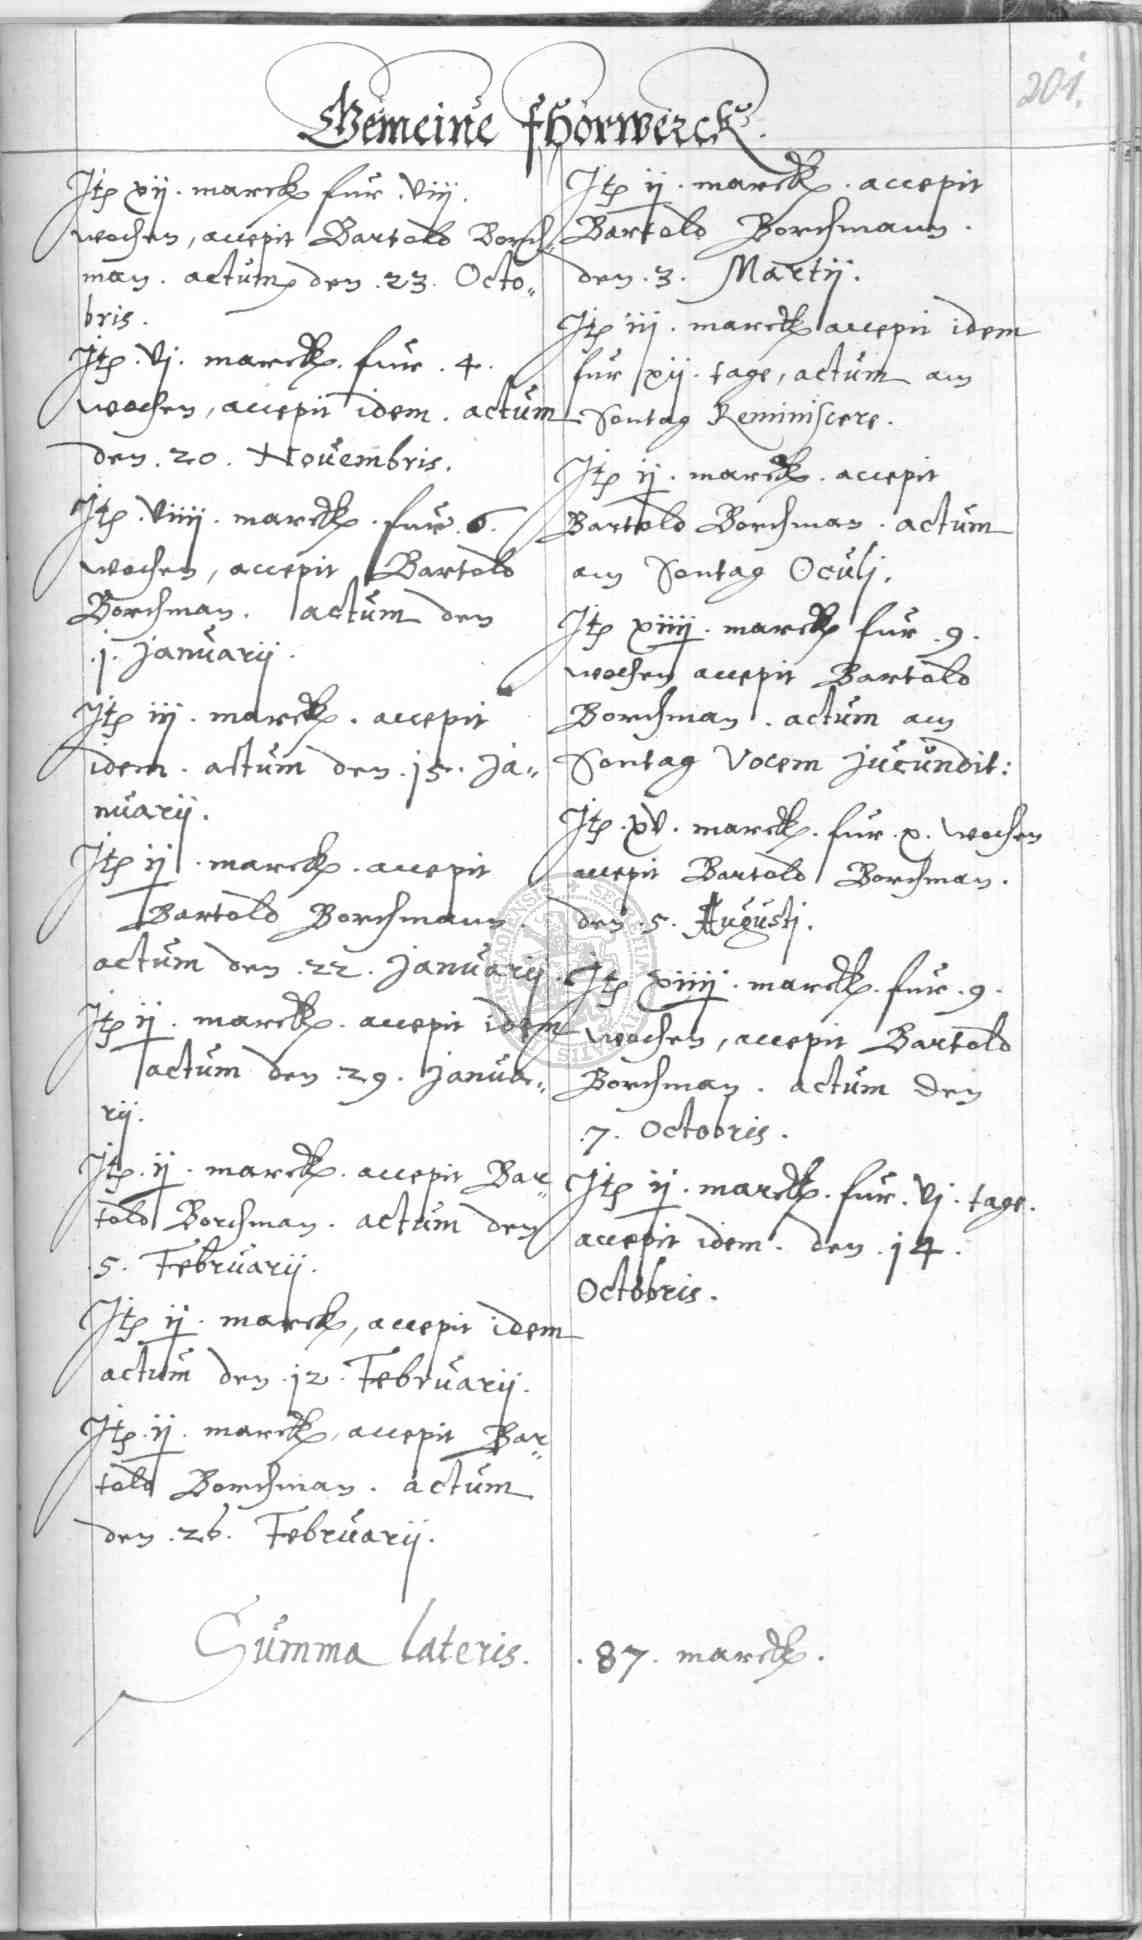 Gemeine fhorwerck.
201.
Jtꝭ xij. marck fur .viij.
wochen, accepit Bartold Borch„
man. actum den .23. Octo„
bris.
Jtꝭ .vj. marck. fur .4.
wochen, accepit idem. actum
den .20. Novembris.
Jtꝭ .viiij. marck. fur .6.
wochen, accepit Bartold
Borchman. actum den
.j. Januarij.
Jtꝭ iij. marck. accepit
idem. actum den .15. Ja„
nuarij.
Jtꝭ ij. marck. accepit
Bartold Borchmann.
actum den .22. Januarij.
Jtꝭ ij. marck. accepit idem
actum den .29. Janua„
rij.
Jtꝭ .ij. marck. accepit Bar„
told Borchman. actum den
.5. Februarij.
Jtꝭ ij. marck, accepit idem
actum den .12. Februarij.
Jtꝭ .ij. marck, accepit Bar„
told Borchman. actum
den .26. Februarij.
Jtꝭ ij. marck. accepit
Bartold Borchmann.
den .3. Martij.
Jtꝭ iij. marck accepit idem
fur xij. tage, actum am
Sontag Reminiscere.
Jtꝭ ij. marck. accepit
Bartold Borchman. actum
am Sontag Oculj.
Jtꝭ xiiij. marck fur .9.
wochen accepit Bartold
Borchman. actum am
Sontag Vocem Jucundit:
Jtꝭ .xv. marck. fur .x. wochen
accepit Bartold Borchman.
den .5. Augustj.
Jtꝭ xiiij. marck. fur .9.
wochen, accepit Bartold
Borchman. actum den
.7. Octobris.
Jtꝭ ij. marck. fur .vj. tage.
accepit idem. den .14.
Octobris.
Summa lateris. .87. marck.